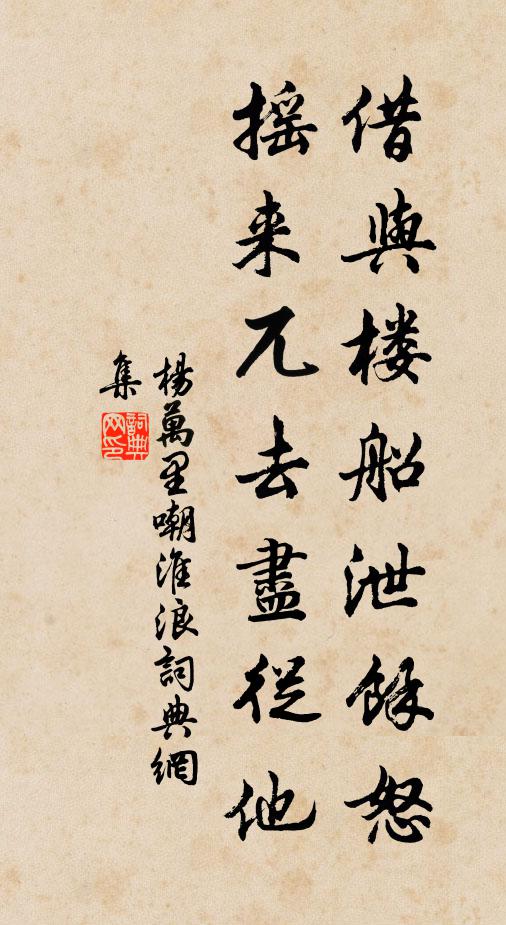 借與楼船泄餘怒
摇来兀去盡從他
楊萬里嘲淮浪詞典網
集
詞典
网印